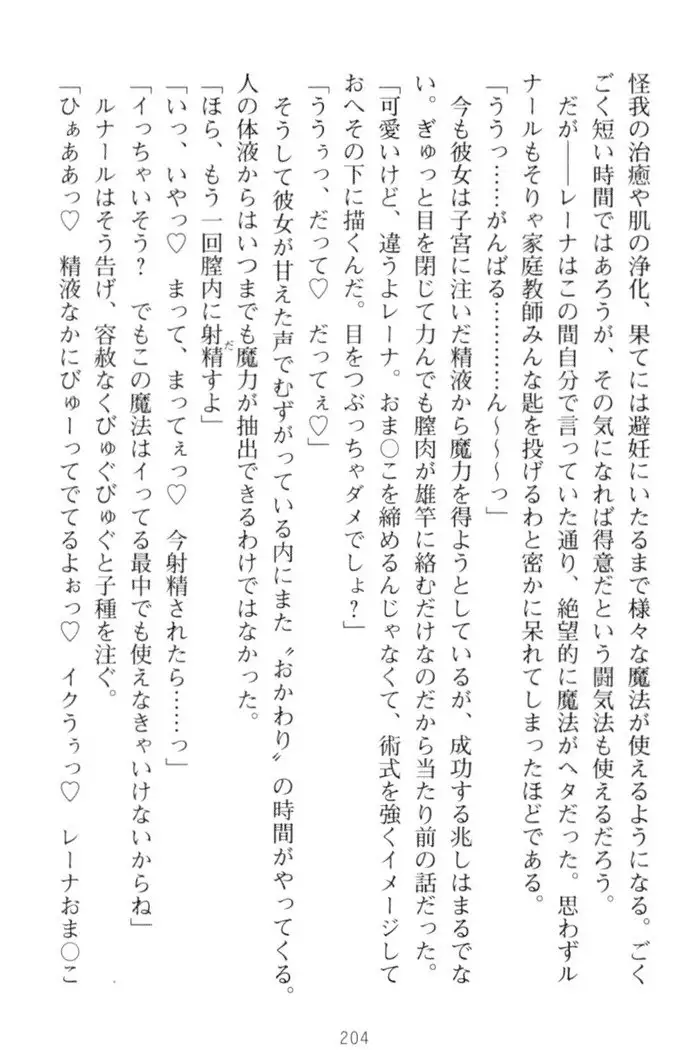 怪我の治癒や肌の浄化、果てには避妊にいたるまで様々な魔法が使えるようになる。ごく
ごく短い時間ではあろうが、その気になれば得意だという闘気法も使えるだろう。
だが――レーナはこの間自分で言っていた通り、絶望的に魔法がヘタだった。思わずル
ナールもそりゃ家庭教師みんな匙を投げるわと密かに呆れてしまったほどである。
「ううっ……がんばる…………ん～～～っ」
今も彼女は子宮に注いだ精液から魔力を得ようとしているが、成功する兆しはまるでな
い。ぎゅっと目を閉じて力んでも膣肉が雄竿に絡むだけなのだから当たり前の話だった。
「可愛いけど、違うよレーナ。おま○こを締めるんじゃなくて、術式を強くイメージして
おへその下に描くんだ。目をつぶっちゃダメでしょ？」
「ううぅっ、だって♡　だってぇ♡」
そうして彼女が甘えた声でむずがっている内にまた〝おかわり〟の時間がやってくる。
人の体液からはいつまでも魔力が抽出できるわけではなかった。
「ほら、もう一回膣内に射精すよ」
だ
「いっ、いやっ♡　まって、まってぇっ♡　今射精されたら……っ」
「イっちゃいそう？　でもこの魔法はイってる最中でも使えなきゃいけないからね」
ルナールはそう告げ、容赦なくびゅぐびゅぐと子種を注ぐ。
「ひぁああっ♡　精液なかにびゅーってでてるよぉっ♡　イクうぅっ♡　レーナおま○こ
204